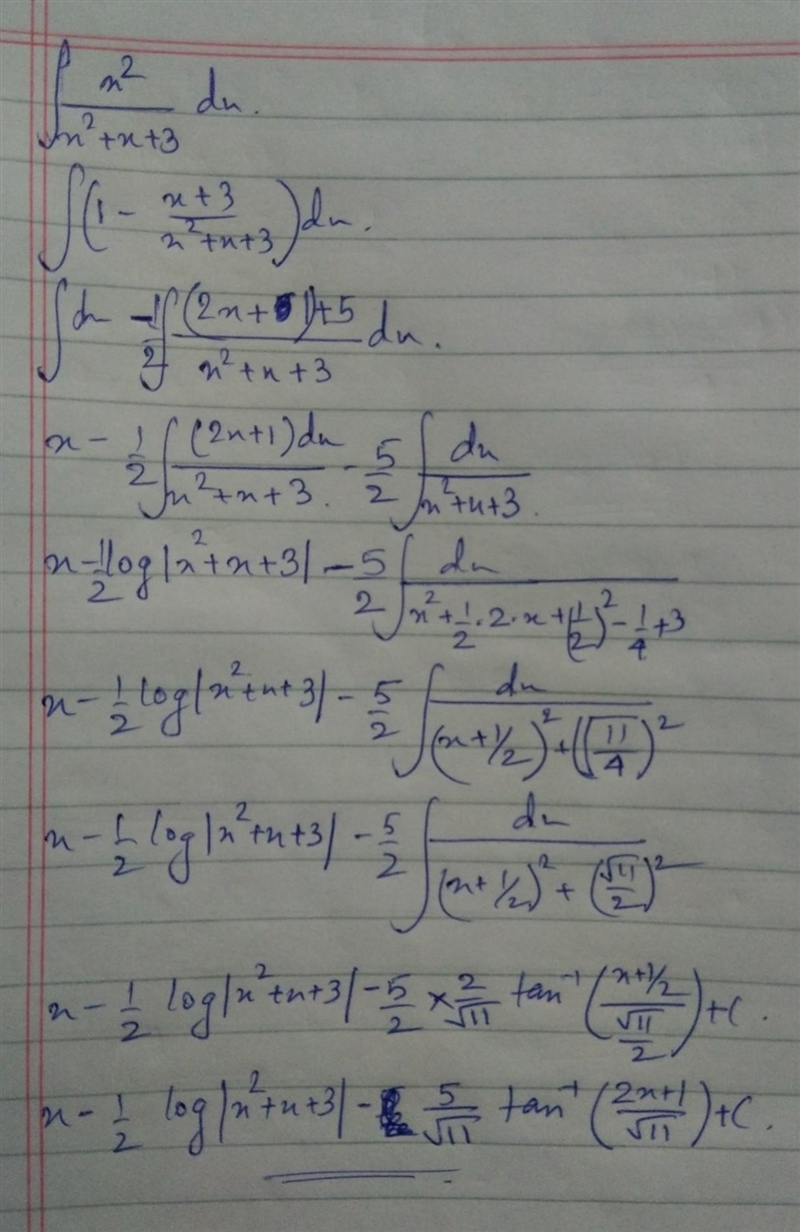 ∫ x²/(x²+x+3) dx.
∫(1 - (x+3)/(x²+x+3))dx.
∫dx - 1/2 ∫ ((2x+1)+5)/(x²+x+3) dx.
x - 1/2 ∫ (2x+1)dx/(x²+x+3) - 5/2 ∫ dx/(x²+x+3).
x - 1/2 log|x²+x+3| - 5/2 ∫ dx/(x²+1/2·2·x+(1/2)²-1/4+3)
x - 1/2 log|x²+x+3| - 5/2 ∫ dx/((x+1/2)²+(√(11/4))²)
x - 1/2 log|x²+x+3| - 5/2 ∫ dx/((x+1/2)²+(√11/2)²)
x - 1/2 log|x²+x+3| - 5/2 × 2/√11 tan⁻¹((x+1/2)/(√11/2))+C.
x - 1/2 log|x²+x+3| - 5/√11 tan⁻¹((2x+1)/√11)+C.